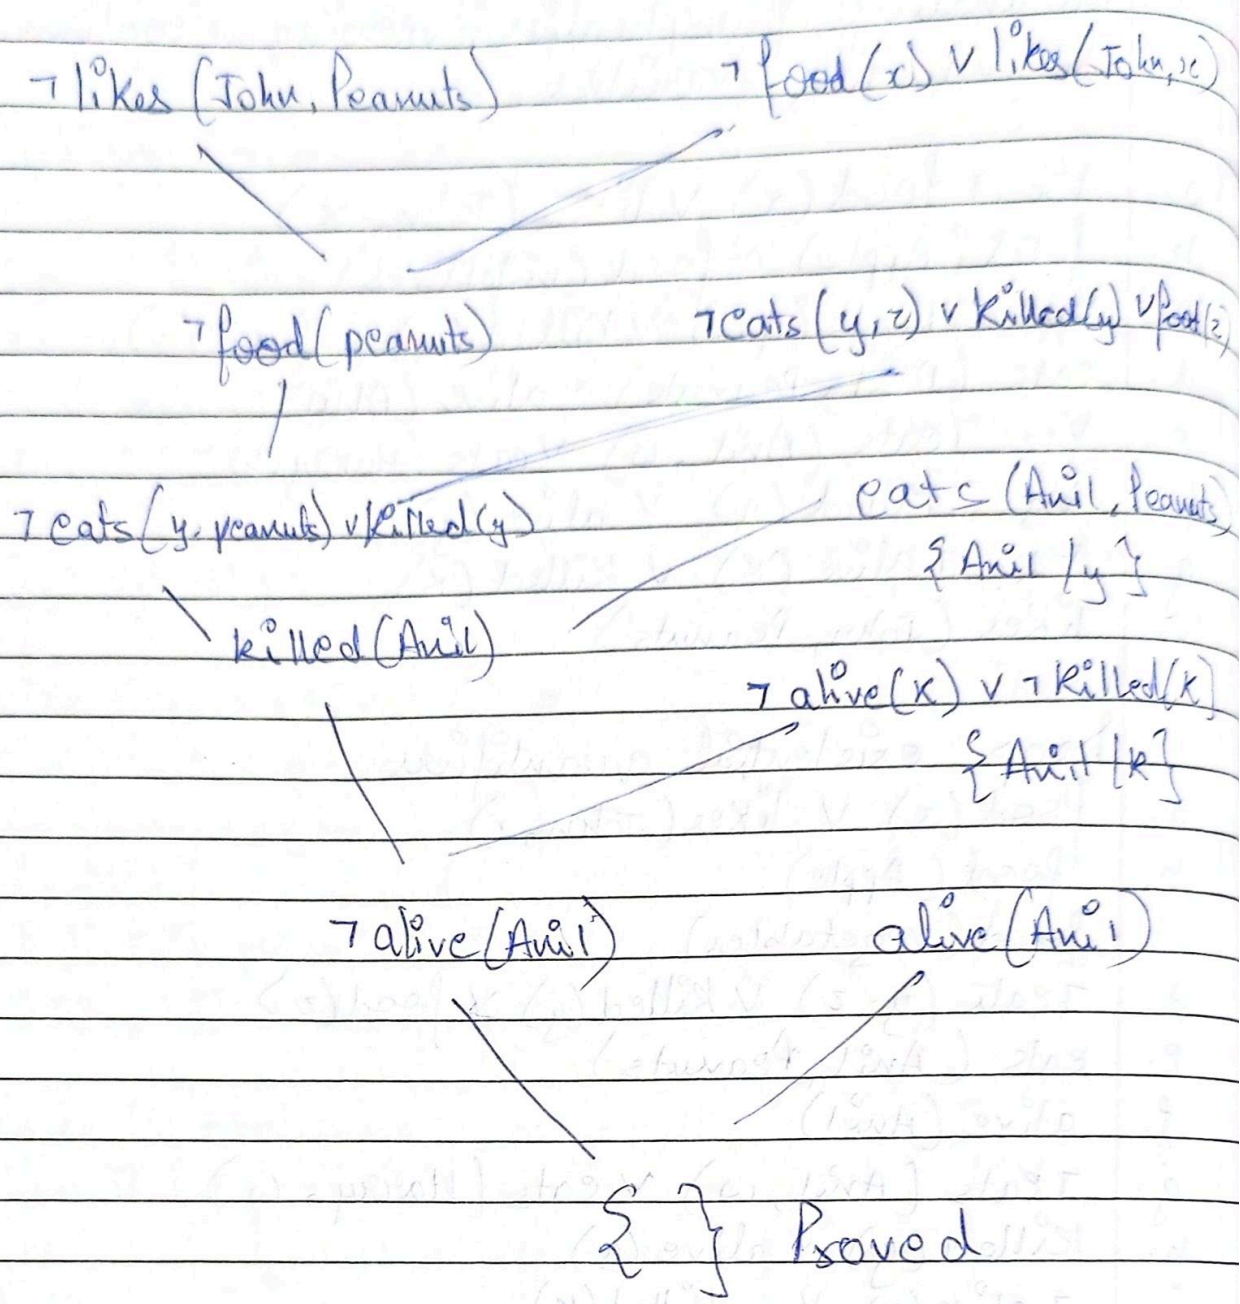 ¬ likes (John, Peanuts) ¬ food(x) ∨ likes(John, x)
¬ food(peanuts) ¬ eats(y, z) ∨ killed(y) ∨ food(z)
¬ eats(y, peanuts) ∨ killed(y) eats (Anil, Peanuts)
{Anil / y}
killed(Anil)
¬ alive(k) ∨ ¬ killed(k)
{Anil / k}
¬ alive(Anil) alive(Anil)
{ } Proved